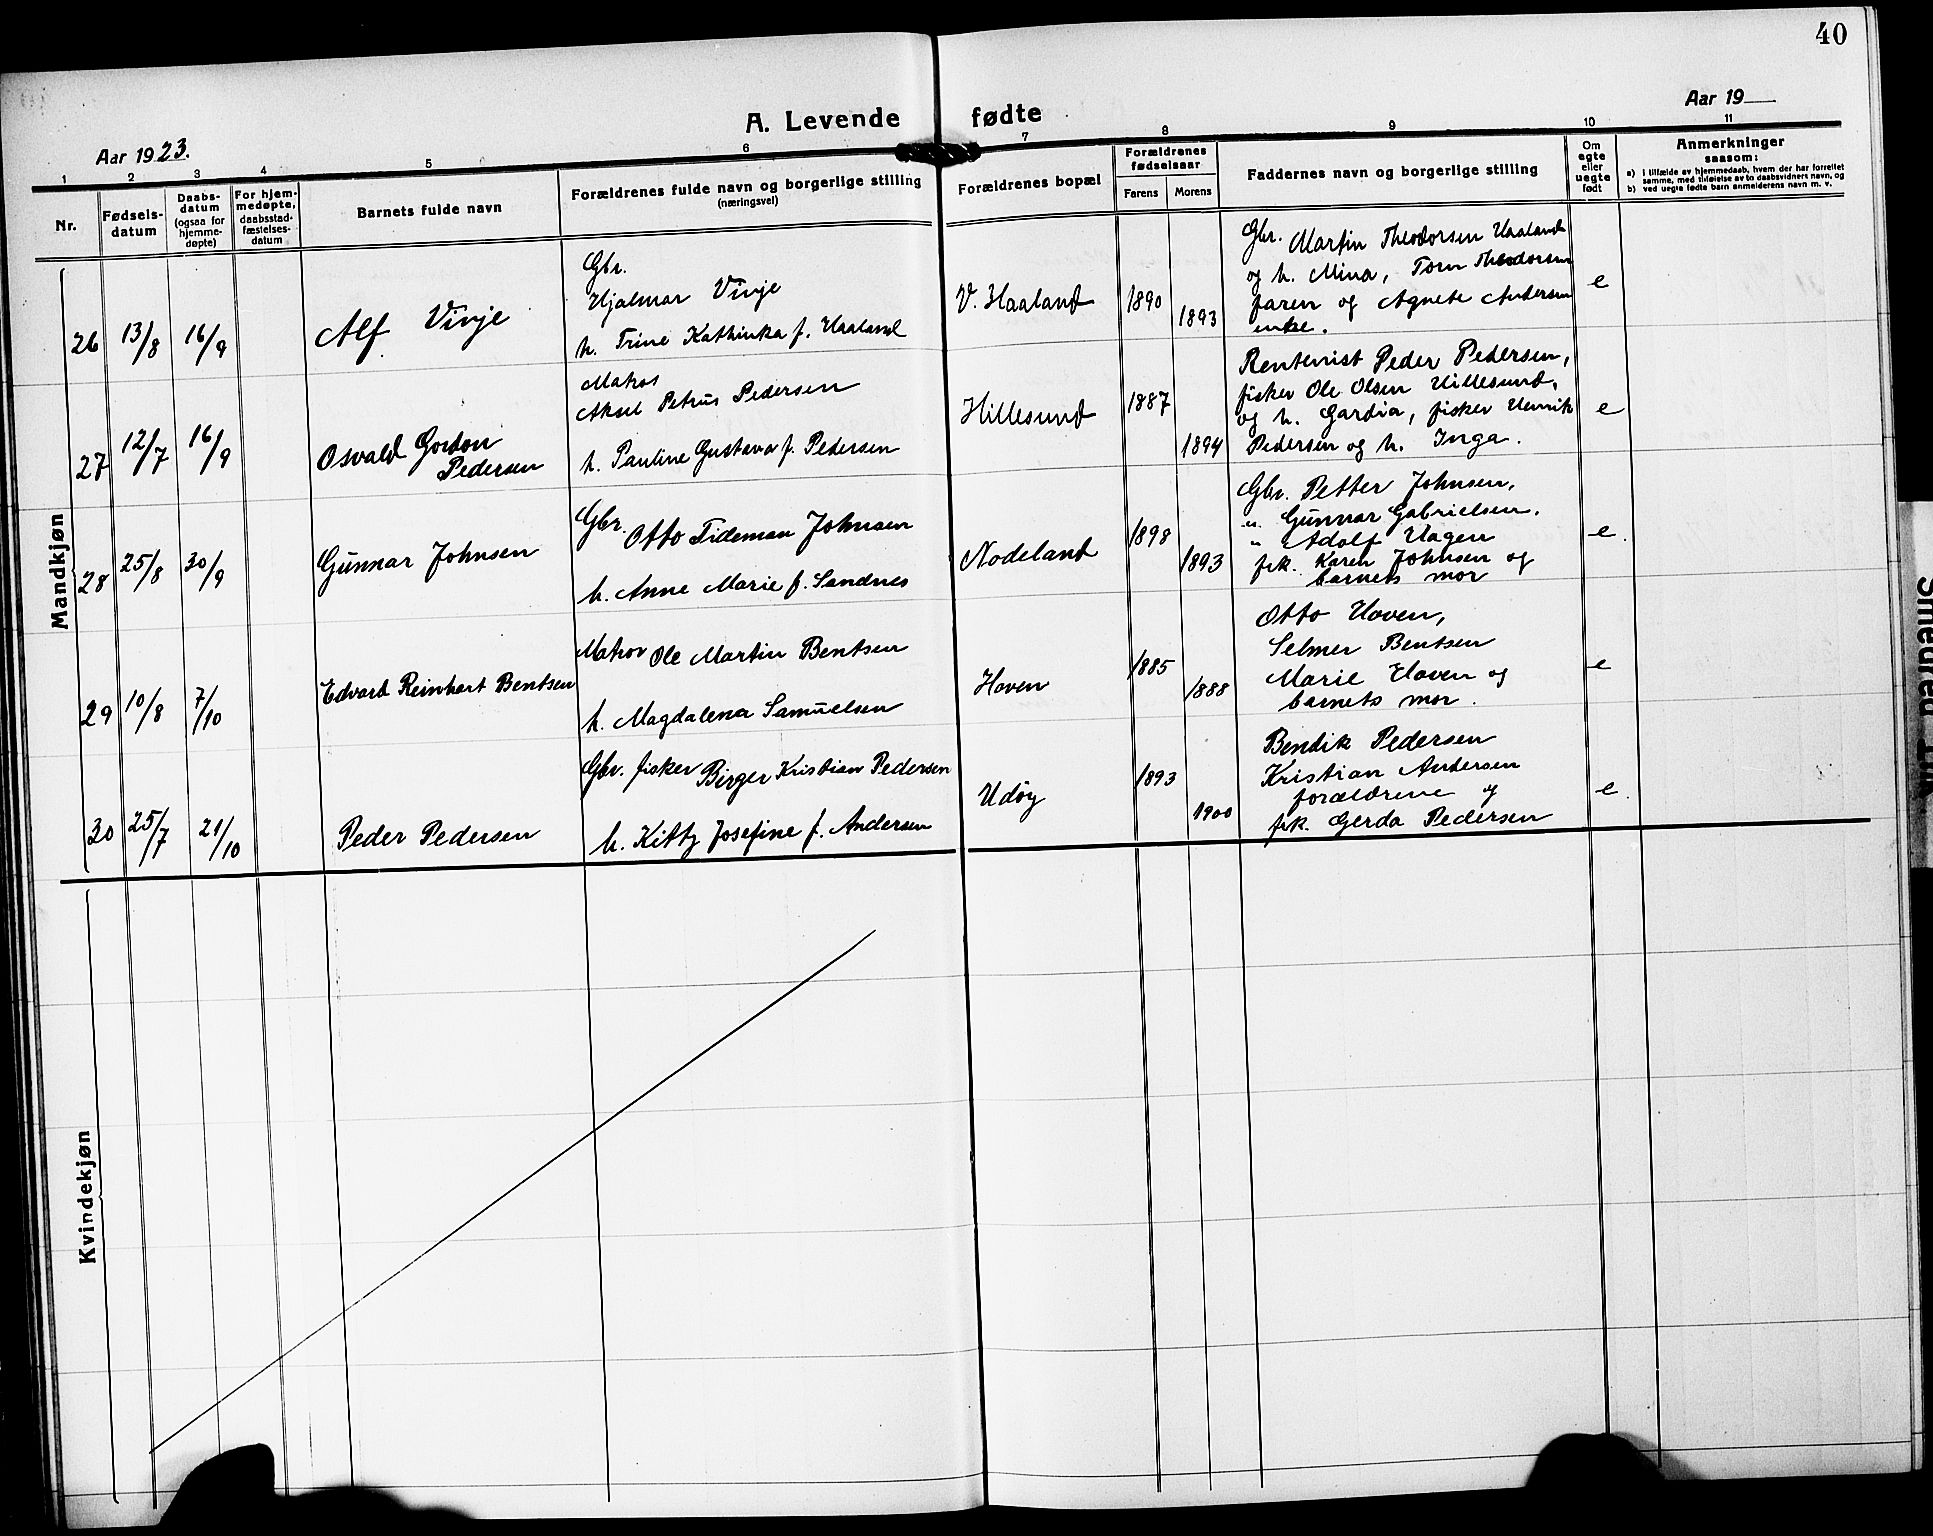 40
Aar 1923.
A. Levende fødte
Aar 19
1 2 3 4 5 6 7 8 9 10 11
Nr.
Fødsels-
datum
Daabs-
datum
(ogsaa for
hjemme-
døpte)
For hjem-
medøpte,
daabsstad-
fæstelses-
datum
Barnets fulde navn
Forældrenes fulde navn og borgerlige stilling
(næringsvei)
Forældrenes bopæl
Forældrenes
fødselsaar
Farens Morens
Faddernes navn og borgerlige stilling
Om
egte
eller
uegte
født
Anmerkninger
saasom:
a) i tilfælde av hjemmedaab, hvem der har forrettet
samme, med tilføielse av to daabsvidners navn, og
b) ved uegte fødte barn anmelderens navn m. v.
Mandkjøn
26 13/8 16/9
Alf Vinje
Gbr.
Hjalmar Vinje
h. Trine Kathinka f. Haaland
V. Haaland
1890
1893
Gbr. Martin Theodorsen Haaland
og h. Mina, Tom Theodorsen
faren og Agnete Andersen
enke.
e
27 12/7 16/9
Osvald Gordon
Pedersen
Matros
Aksel Petrus Pedersen
h. Pauline Gustava f. Pedersen
Hillesund
1887
1894
Rentenist Peder Pedersen,
fisker Ole Olsen Hillesund,
og h. Gardia, fisker Henrik
Pedersen og h. Inga.
e
28 25/8 30/9
Gunnar Johnsen
Gbr. Otto Tideman Johnsen
h. Anne Marie f. Sandnes
Nodeland
1898
1893
Gbr. Petter Johnsen,
" Gunnar Gabrielsen,
" Adolf Hagen
frk. Karen Johnsen og
barnets mor
e.
29 10/8 7/10
Edvard Reinhart Bentsen
Matros Ole Martin Bentsen
h. Magdalena Samuelsen
Hoven
1885
1888
Otto Hoven,
Selmer Bentsen
Marie Hoven og
barnets mor.
e
30 25/7 21/10
Peder Pedersen
Gbr. fisker Birger Kristian Pedersen
h. Kitty Josefine f. Andersen
Udøy
1893
1900
Bendik Pedersen
Kristian Andersen
forældrene og
frk. Gerda Pedersen
e.
Kvindekjøn